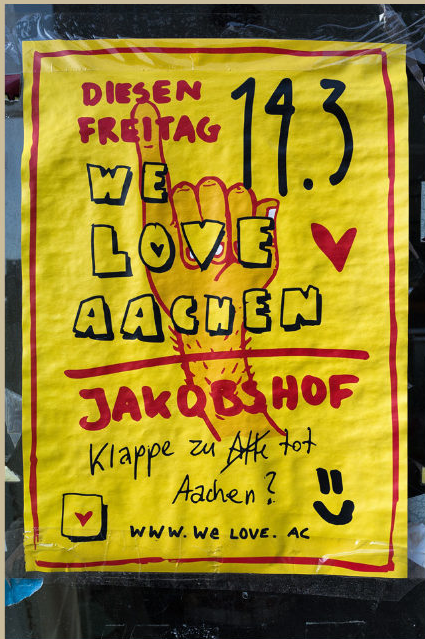 DIESEN
FREITAG
14.3
WE
LOVE
AACHEN
JAKOBSHOF
Klappe zu Affe tot
Aachen?
www.We LOVE. AC